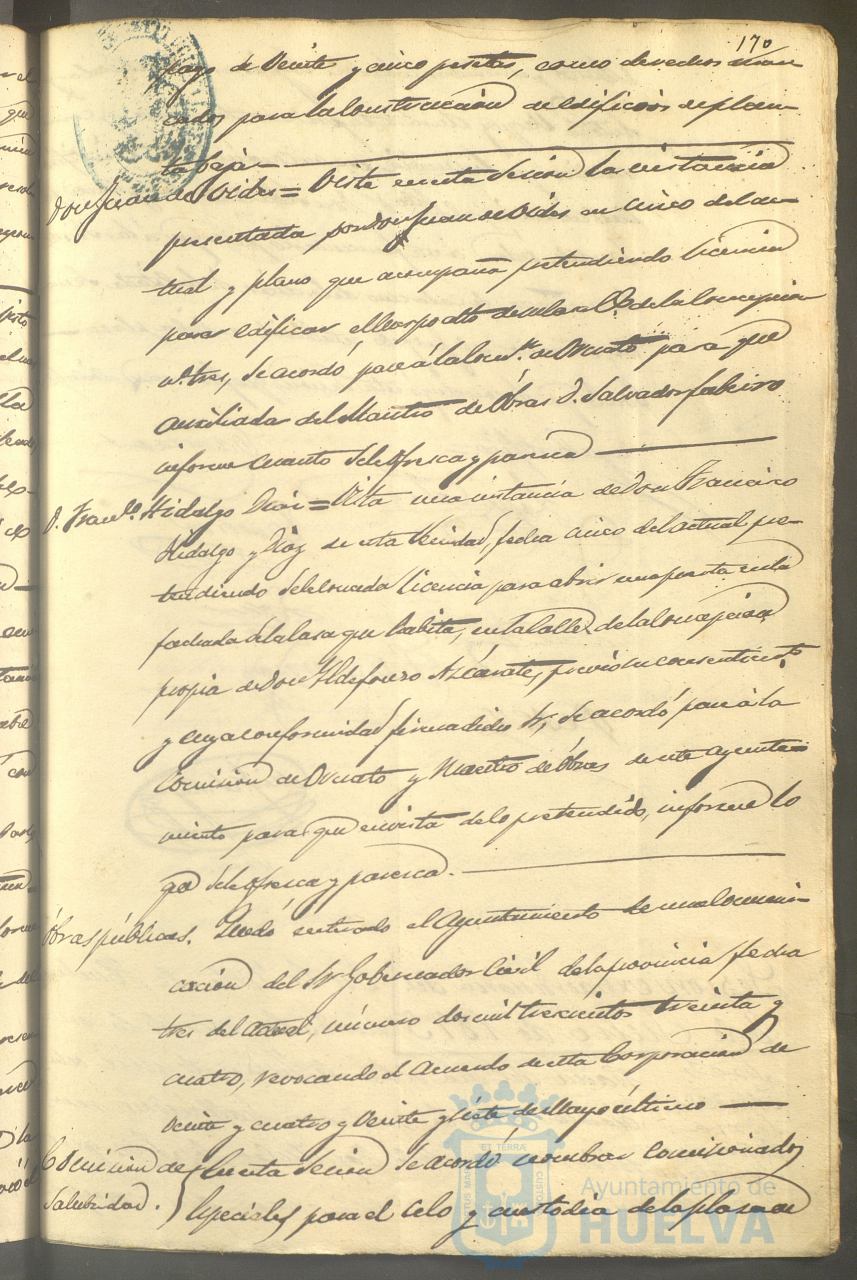 170
pago de Veinte y cinco pesetas, como derechos mar-
cados para la construcción de edificios de plan-
ta baja.
Don Juan de Vides = Vista en esta Sesión la instancia
presentada por Don Juan de Vides en cinco del ac-
tual y plano que acompaña pretendiendo licencia
para edificar el cuerpo alto de su casa C.e de la Concepción
n.o tres, se acordó pase á la Com.n de Ornato para que
auxiliada del Maestro de Obras D. Salvador
informe cuanto se le ofresca y paresca
D. Fran.co Hidalgo Diaz = Vista una instancia de Don Francisco
Hidalgo y Diaz de esta Vecindad, fecha cinco del actual pre-
tendiendo se le conceda licencia para abrir una puerta en la
fachada de la casa que habita, en la calle de la Concepción
propia de Don Ildefonso Azcárate, previo su consentim.to
y cuya conformidad firma dicho Sr, se acordó pase á la
Comisión de Ornato y Maestro de Obras de este Ayunta-
miento para que en vista de lo pretendido, informe lo
que se le ofresca y paresca.
Obras públicas. Quedó enterado el Ayuntamiento de una comuni-
cación del Sr Gobernador Civil de la provincia fecha
tres del actual, número dos mil trescientos treinta y
cuatro, revocando el acuerdo de esta Corporación de
veinte y cuatro y Veinte y siete de Mayo último
Comisión de Salubridad. } En esta Sesión se acordó nombrar Comisionados
Especiales para el celo y custodia de la plasa de
ET TERRÆ
CUSTODIA
Ayuntamiento de
HUELVA